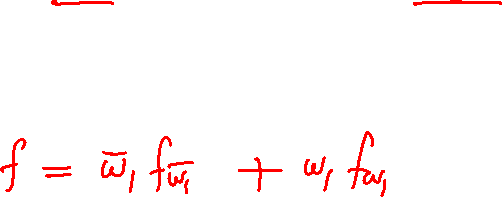 f = w̅₁ f_w̅₁ + w₁ f_w₁